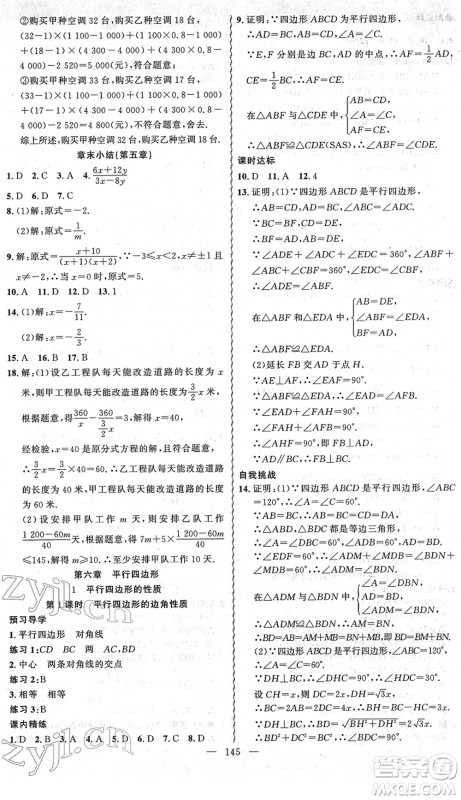 ②购买甲种空调 32 台，购买乙种空调 18 台，
(32－1)×(1 100－1 000)＋(1 100×0.8－
1 000)＋(18－1)×(4 300－4 000)＋(4 300×
0.8－4 000)－2 520＝0(元)，不符合题意，舍去；
③购买甲种空调 33 台，购买乙种空调 17 台，
(33－1)×(1 100－1 000)＋(1 100×0.8－1 000)
＋(17－1)×(4 300－4 000)＋(4 300×0.8－
4 000)－2 520＝4 800(元)，不符合题意，舍去.
综上所述，购买甲种空调 32 台，购买乙种空调 18 台.
章末小结(第五章)
1. D 2. C 3. A 4. (6x＋12y)/(3x－8y)
8. (1)解：原式＝－2.
(2)解：原式＝1/m.
9. 解：原式＝(x＋10)/((x＋1)(x＋2))，∵－3≤x＜2，且 x 为整数，
∴当 x＝0 时，原式＝5.
10. A 11. B 12. D 13. 1
14. (1)解：x＝－7/2.
(2)解：x＝－2/3.
15. A 16. B 17. B
18. 解：(1)设乙工程队每天能改造道路的长度为 x
米，则甲工程队每天能改造道路的长度为 3/2 x 米，
根据题意，得 360/x－360/(3/2 x)＝3，解得 x＝40，
经检验，x＝40 是原分式方程的解，且符合题意，
∴3/2 x＝3/2×40＝60. 答：乙工程队每天能改造道路
的长度为 40 米，甲工程队每天能改造道路的长度
为 60 米.
(2)设安排甲队工作 m 天，则安排乙队工作
(1 200－60m)/40 天，根据题意，得 7m＋5×(1 200－60m)/40
≤145，解得 m≥10. 答：至少安排甲队工作 10 天.
第六章 平行四边形
1 平行四边形的性质
第 1 课时 平行四边形的边角性质
预习导学
1. 平行四边形 对角线
练习 1：CD BC AD AB
2. 中心 两条对角线的交点
练习 2：D
3. 相等 相等
练习 3：B
课内精练
1. D 2. D 3. C 4. B 5. A 6. C 7. D 8. D
9. 证明：∵四边形 ABCD 为平行四边形，
∴AD＝BC，∠A＝∠C，AB＝CD.
∵E，F 分别是边 BC，AD 的中点，∴AF＝1/2 AD，
CE＝1/2 BC，∴AF＝CE.
在△ABF 与△CDE 中，{AB＝CD，∠A＝∠C，AF＝CE，
∴△ABF≌△CDE(SAS).
课时达标
10. D 11. A 12. 4
13. 证明：(1)∵四边形 ABCD 是平行四边形，
∴AB＝CD，AD＝BC，∠ABC＝∠ADC.
∵BC＝BF，CD＝DE，
∴BF＝AD，AB＝DE.
∵∠ADE＋∠ADC＋∠EDC＝360°，∠ABF＋
∠ABC＋∠CBF＝360°，∠EDC＝∠CBF，
∴∠ADE＝∠ABF.
在△ABF 与△EDA 中，{AB＝DE，∠ABF＝∠ADE，BF＝AD，
∴△ABF≌△EDA.
(2)延长 FB 交 AD 于点 H.
∵AE⊥AF，∴∠EAF＝90°.
∵△ABF≌△EDA，∴∠EAD＝∠AFB.
∵∠EAD＋∠FAH＝90°，∴∠FAH＋∠AFB＝90°，
∴∠AHF＝90°，即 FB⊥AD.
∵AD∥BC，∴FB⊥BC.
自我挑战
14. 证明：(1)∵四边形 ABCD 是平行四边形，∠ABC
＝120°，∴∠A＝∠C＝60°.
∵AD＝BD，∴△ABD 是等边三角形，
∴∠ABD＝∠A＝60°，AD＝BD，∴∠ADB＝60°.
∵∠MDN＝60°，∴∠ADM＝∠BDN.
在△ADM 与△BDN 中，{∠A＝∠DBN，AD＝BD，∠ADM＝∠BDN，
∴△ADM≌△BDN，∴AM＝BN.
(2)∵四边形 ABCD 是平行四边形，
∴AD∥BC，∴∠DBC＝∠ADB＝60°.
∵DH⊥BC，∴∠DHB＝90°，∴∠BDH＝30°.
设 BH＝x，则 BD＝2x，∴DH＝√3x.
∵DH⊥BC，∴BD＝√(BH²＋DH²)＝√(x²＋DH²)
＝2x，∴DH＝√3x.
— 145 —
zyjl.cn
zyjl.cn
作业精灵